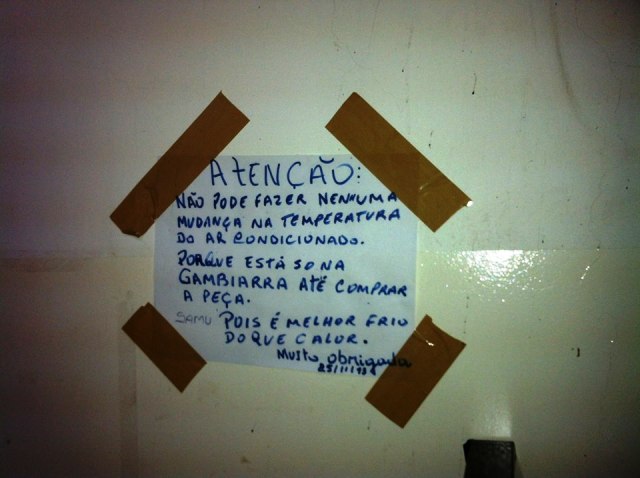 ATENÇÃO:
NÃO PODE FAZER NENHUMA
MUDANÇA NA TEMPERATURA
DO AR CONDICIONADO.
PORQUE ESTÁ SO NA
GAMBIARRA ATÉ COMPRAR
A PEÇA.
SAMU POIS É MELHOR FRIO
DO QUE CALOR.
Muito obrigada